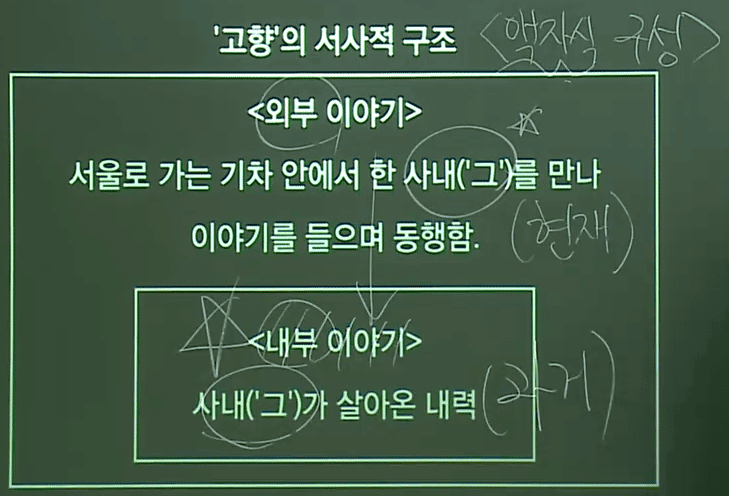 '고향'의 서사적 구조 <액자식 구성>
<외부 이야기>
서울로 가는 기차 안에서 한 사내('그')를 만나
이야기를 들으며 동행함. (현재)
<내부 이야기>
사내('그')가 살아온 내력 (과거)